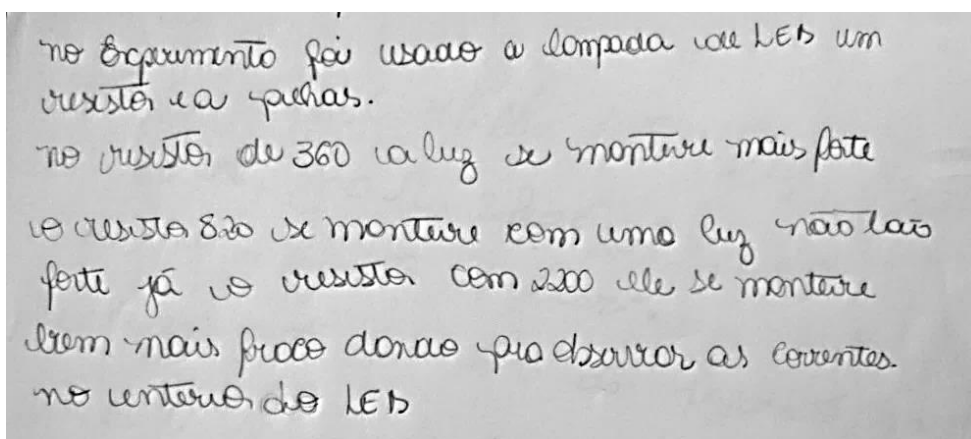 no Experimento foi usado a lompada de LED um
resistor e a pilhas.
no resistor de 360 a luz se monteve mais forte
o resisto 820 se monteve com uma luz não tão
forte já o resistor com 2200 ele se monteve
bem mais fraco dondo pra observar as correntes.
no interior do LED